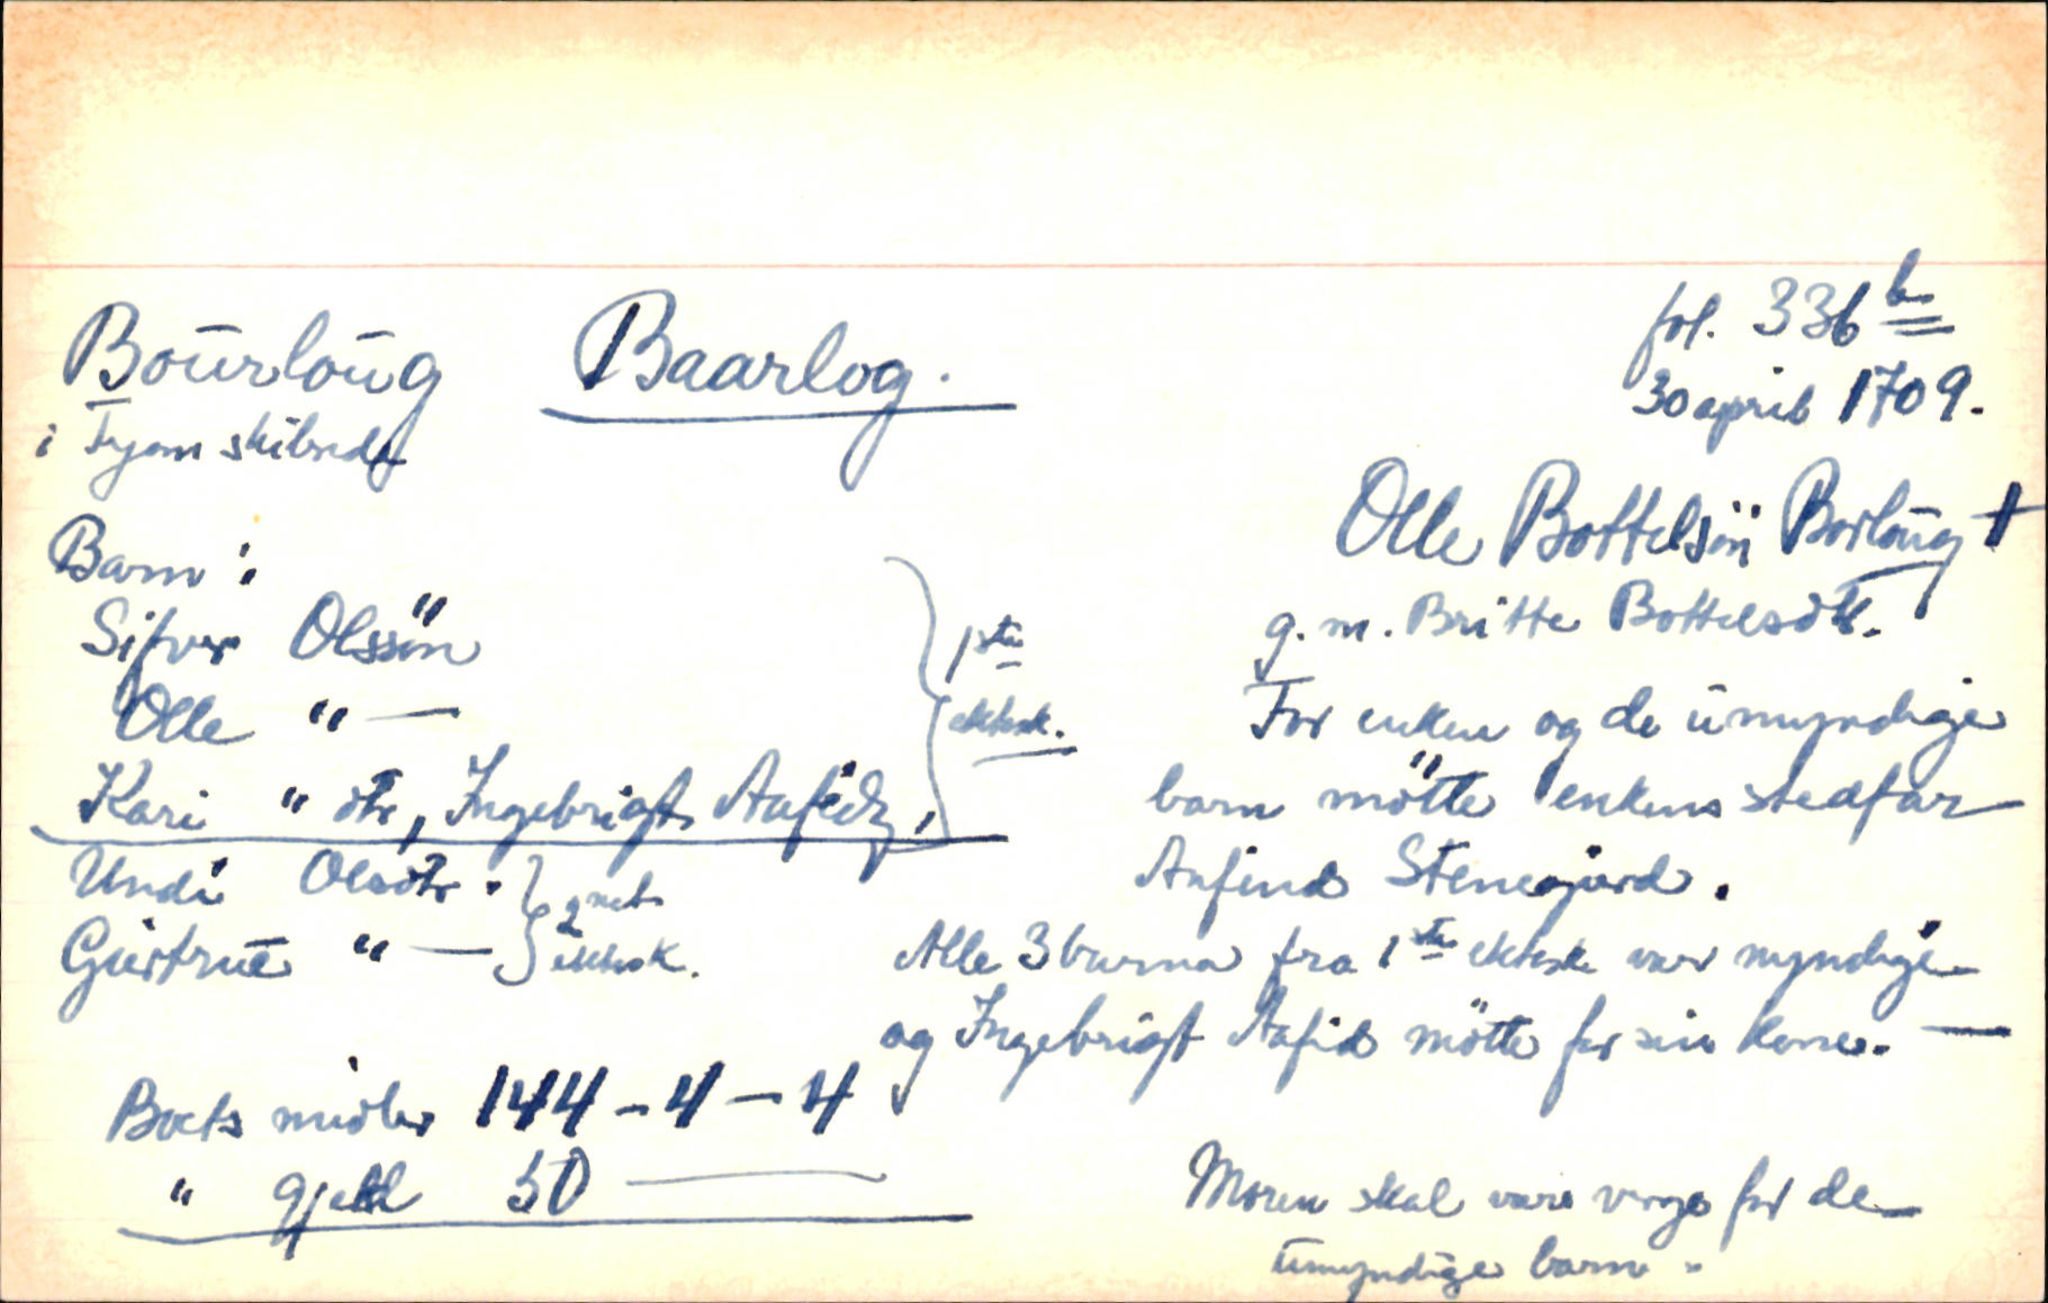 Boŭrloŭg Baarlog.
fol. 336 b
30 april 1709.
i Tyom skibrede
Olle Bottelsön Borloŭg †
g. m. Britte Bottelsdtr.
Barn:
Sifver Olssön
Olle " —
Kari " dtr, Ingebrigt Aafedz,
1ste
ektesk.
Undi Olsdtr.
Giertrue " —
2net
ektesk.
For enken og de ŭmyndige
barn mötte enkens stedfar
Anfind Stenegjard.
Alle 3 barna fra 1ste ektesk. var myndige
og Ingebrigt Aafed mötte for sin kone. —
Boets midler 144 - 4 - 4
" gjeld 50 —
Moren skal være verge for de
ŭmyndige barn.